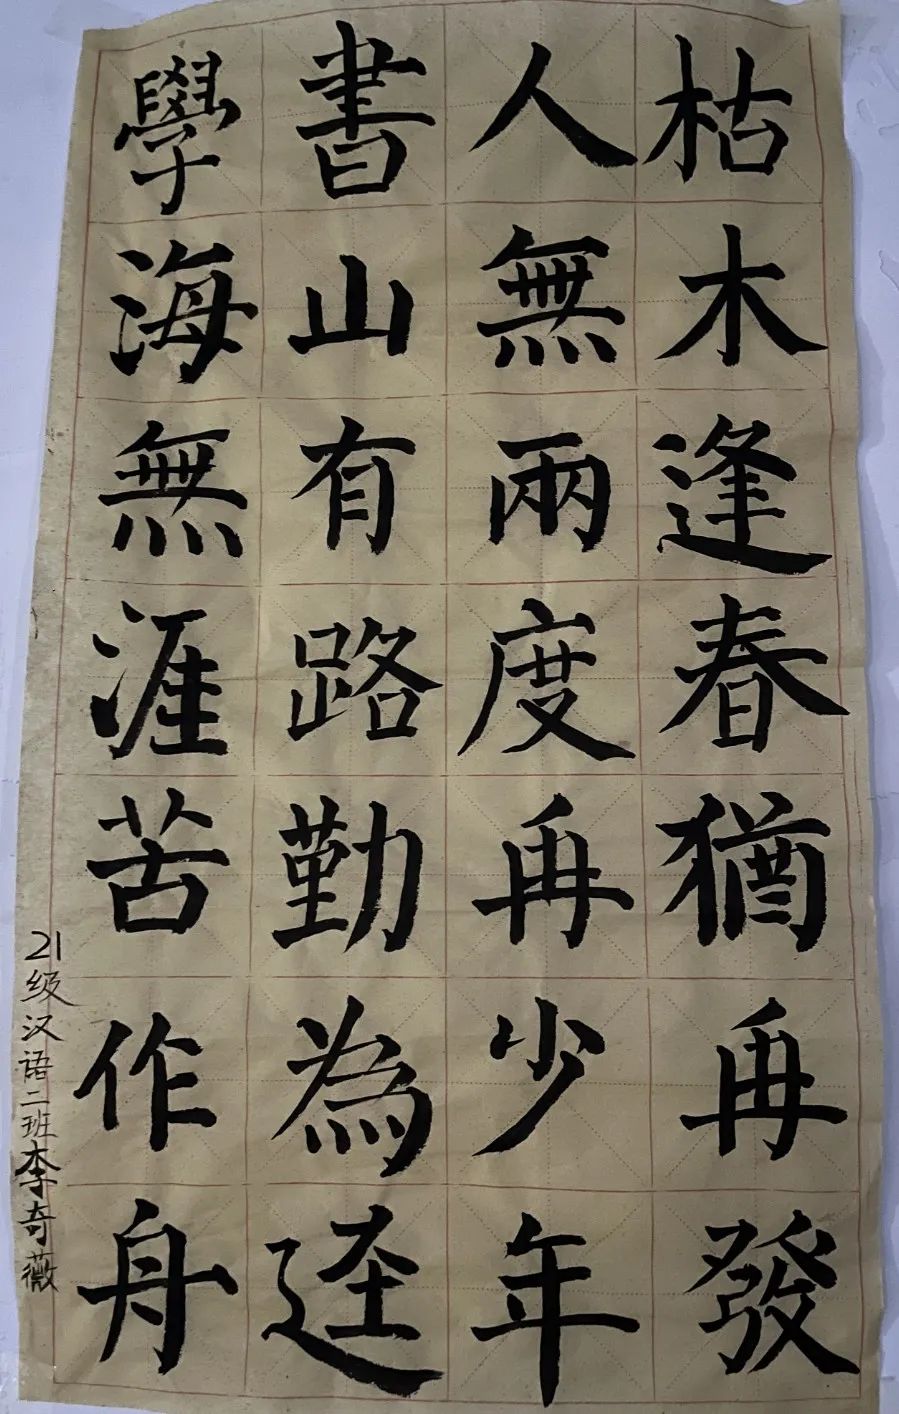 枯木逢春猶再發
人無兩度再少年
書山有路勤為迳
學海無涯苦作舟
21级汉语二班李奇薇